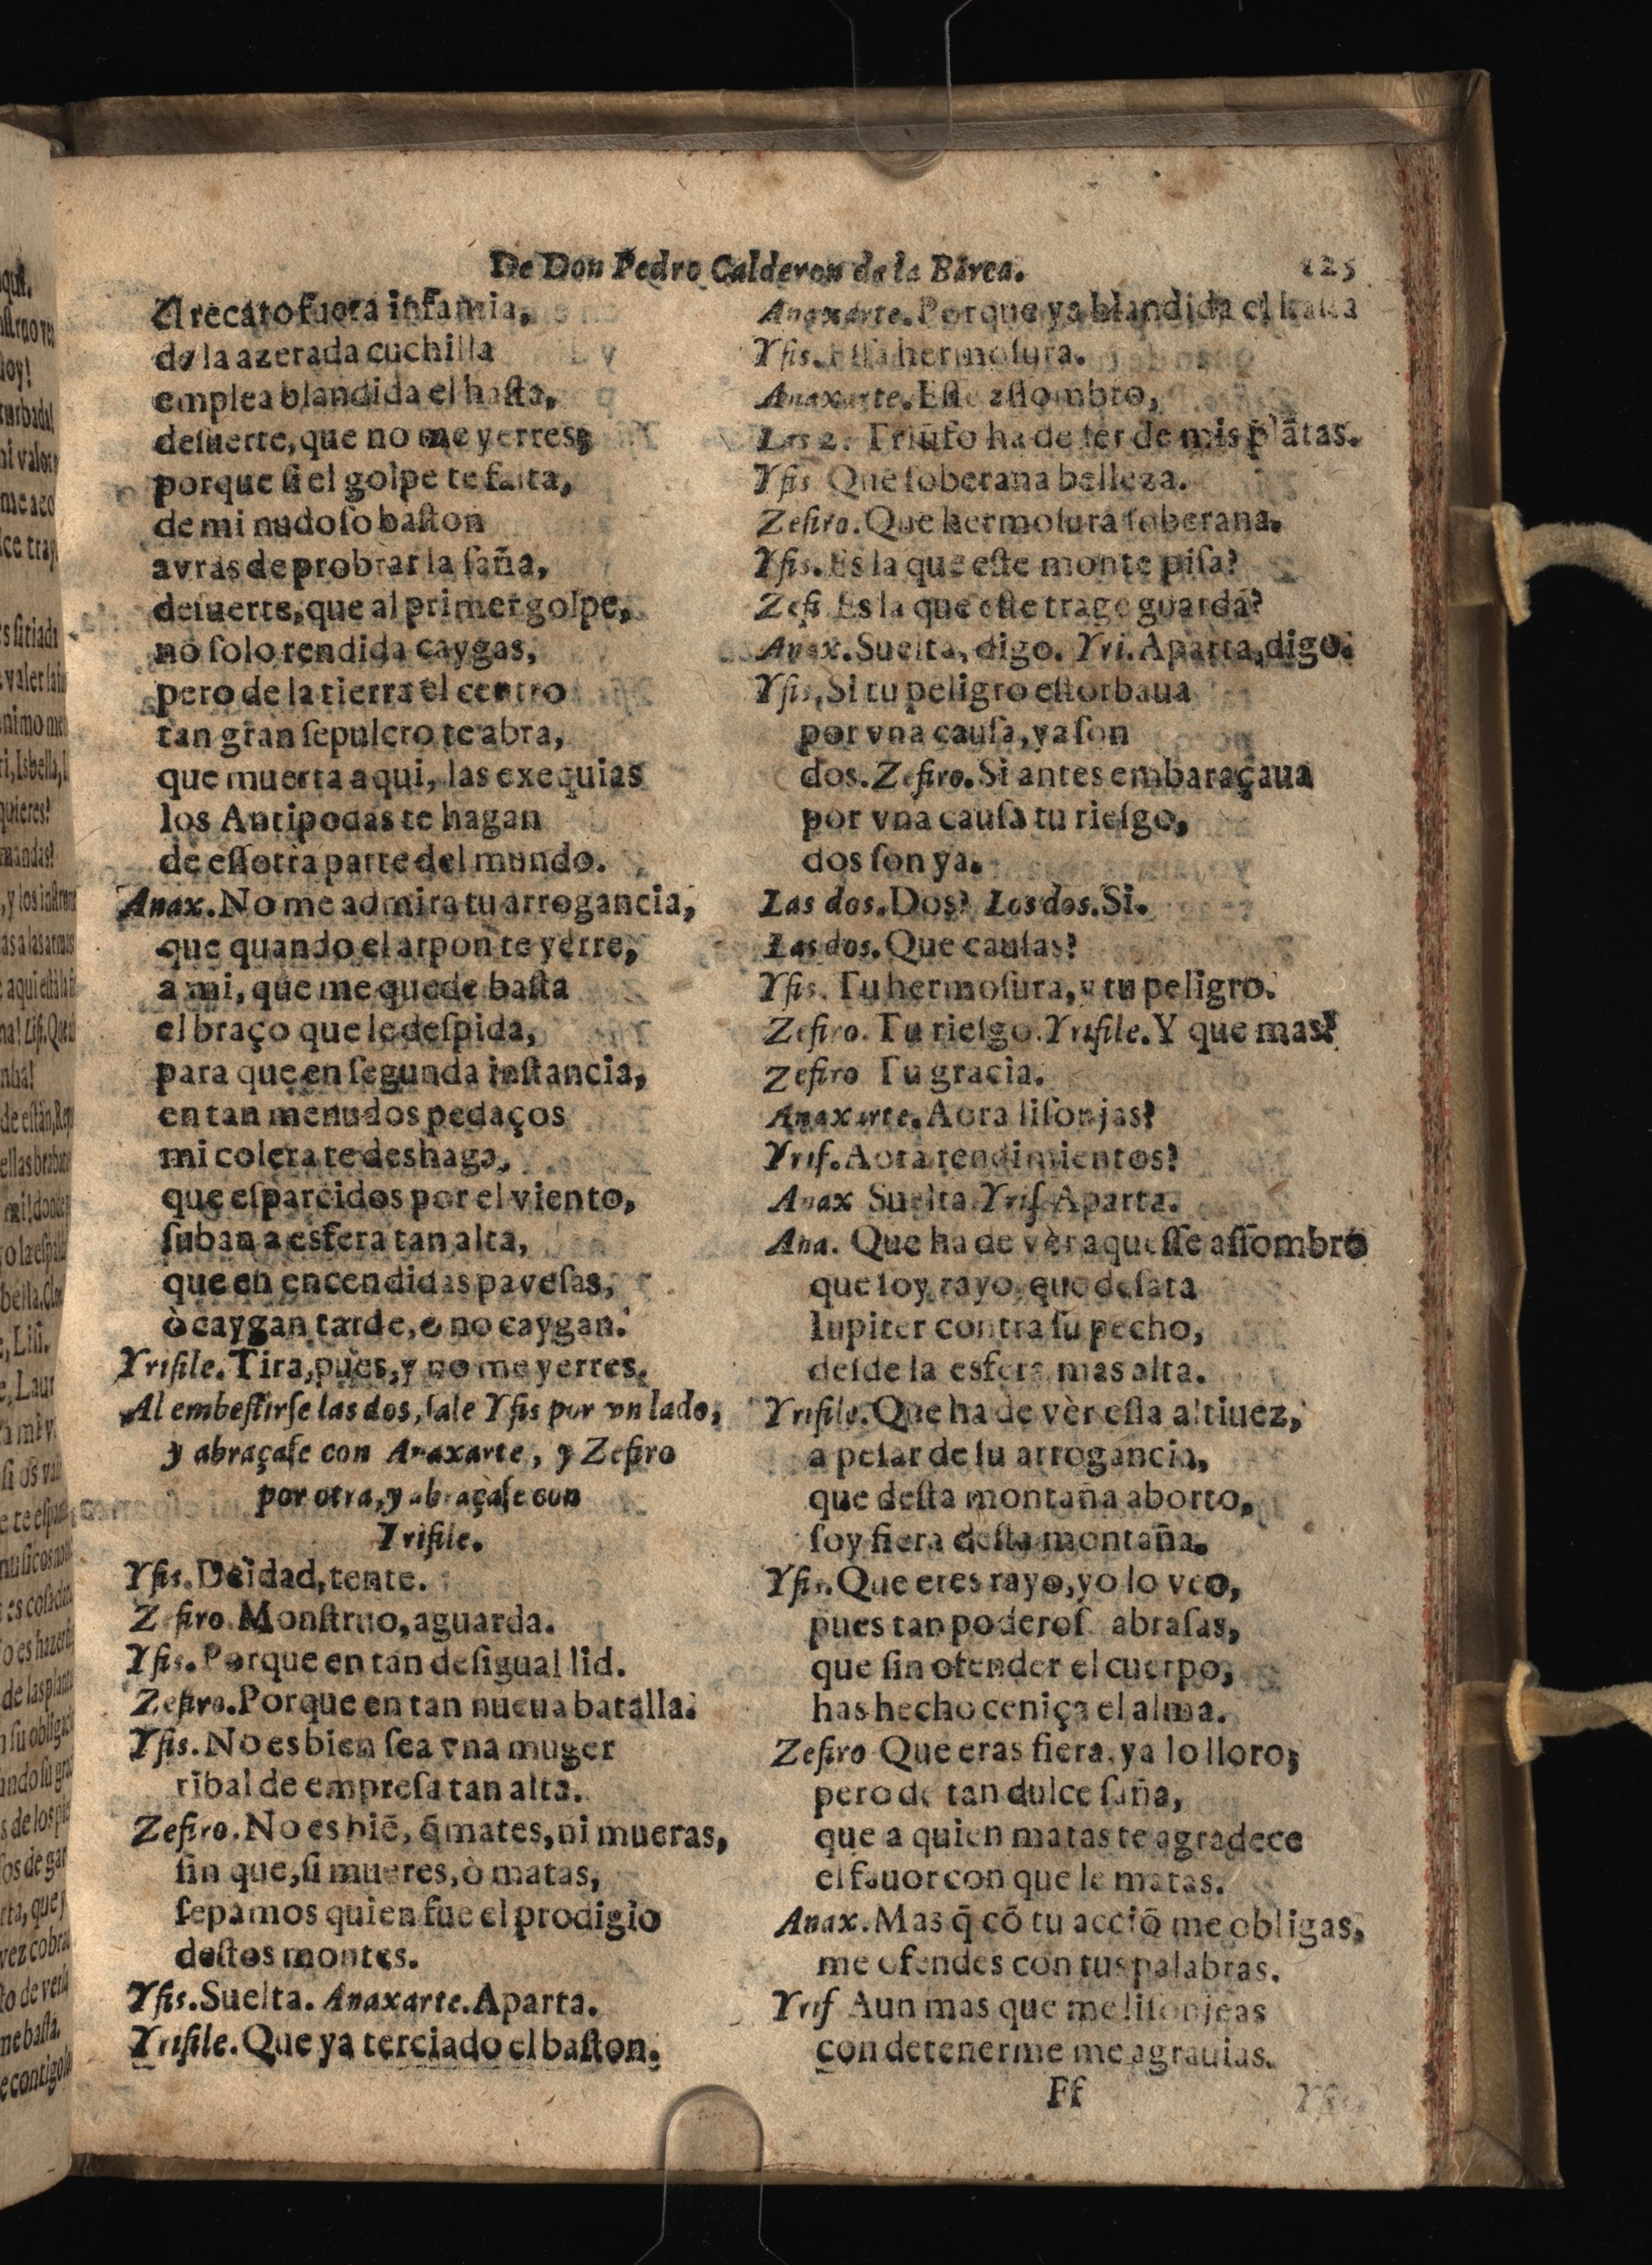 De Don Pedro Calderon de la Barca. 125
El recato fuera infamia,
de la azerada cuchilla
emplea blandida el haſta,
deſuerte, que no me yerres;
porque ſi el golpe te falta,
de mi nudoſo baſton
avràs de probrar la ſaña,
deſuerte, que al primer golpe,
no ſolo rendida caygas,
pero de la tierra el centro
tan gran ſepulcro te abra,
que muerta aqui, las exequias
los Antipodas te hagan
de eſſotra parte del mundo.
Anax. No me admira tu arrogancia,
que quando el arpon te yerre,
a mi, que me quede baſta
el braço que le deſpida,
para que en ſegunda inſtancia,
en tan menudos pedaços
mi colera te deshaga,
que eſparcidos por el viento,
ſuban a esfera tan alta,
que en encendidas paveſas,
ò caygan tarde, o no caygan.
Yriſile. Tira, pues, y no me yerres.
Al embeſtirſe las dos, ſale Yfis por vn lado,
y abraçaſe con Anaxarte, y Zefiro
por otra, y abraçaſe con
Yriſile.
Yfis. Deidad, tente.
Zefiro. Monſtruo, aguarda.
Yfis. Porque en tan deſigual lid.
Zefiro. Porque en tan nueua batalla.
Yfis. No es bien ſea vna muger
ribal de empreſa tan alta.
Zefiro. No es biē, q̄ mates, ni mueras,
ſin que, ſi mueres, ò matas,
ſepamos quien fue el prodigio
deſtos montes.
Yfis. Suelta. Anaxarte. Aparta.
Yriſile. Que ya terciado el baſton.
Anaxarte. Porque ya blandida el haſta
Yfis. Eſſa hermoſura.
Anaxarte. Eſte aſſombro,
Los 2. Triūfo ha de ſer de mis plātas.
Yfis Que ſoberana belleza.
Zefiro. Que hermoſura ſoberana.
Yfis. Es la que eſte monte piſa?
Zefi Es la que eſte trage guarda?
Anax. Suelta, digo. Yri. Aparta, digo.
Yfis, Si tu peligro eſtorbaua
por vna cauſa, ya ſon
dos. Zefiro. Si antes embaraçaua
por vna cauſa tu rieſgo,
dos ſon ya.
Las dos. Dos? Los dos. Si.
Las dos. Que cauſas?
Yfis. Tu hermoſura, y tu peligro.
Zefiro. Tu rieſgo. Yriſile. Y que mas?
Zefiro Tu gracia.
Anaxarte. Aora liſonjas?
Yriſ. Aora rendimientos?
Anax Suelta Yriſ Aparta.
Ana. Que ha de vèr aqueſſe aſſombro
que ſoy rayo, que deſata
Iupiter contra ſu pecho,
deſde la esfera mas alta.
Yriſile. Que ha de vèr eſſa altiuez,
a peſar de ſu arrogancia,
que deſta montaña aborto,
ſoy fiera deſta montaña.
Yfis. Que eres rayo, yo lo veo,
pues tan poderoſ abraſas,
que ſin ofender el cuerpo,
has hecho ceniça el alma.
Zefiro Que eras fiera, ya lo lloro;
pero de tan dulce ſaña,
que a quien matas te agradece
el fauor con que le matas.
Anax. Mas q̄ cō tu acciō me obligas,
me ofendes con tus palabras.
Yriſ Aun mas que me liſonjeas
con detenerme me agrauias.
Ff